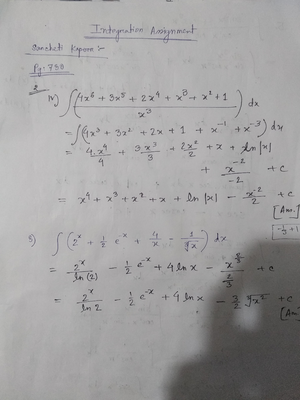 Integration Assignment
Sancheti Kapoor :-
Pg: 750
2
iv) ∫(4x⁶ + 3x⁵ + 2x⁴ + x³ + x² + 1 / x³) dx
= ∫(4x³ + 3x² + 2x + 1 + x⁻¹ + x⁻³) dx
= 4·x⁴/4 + 3·x³/3 + 2x²/2 + x + ln|x|
+ x⁻²/-2 + c
= x⁴ + x³ + x² + x + ln|x| - x⁻²/2 + c
[Ans.]
-1/3 + 1
5) ∫(2ˣ + 1/2 e⁻ˣ + 4/x - 1/∛x) dx
= 2ˣ/ln(2) - 1/2 e⁻ˣ + 4 ln x - x^(2/3)/(2/3) + c
= 2ˣ/ln 2 - 1/2 e⁻ˣ + 4 ln x - 3/2 ∛x² + c